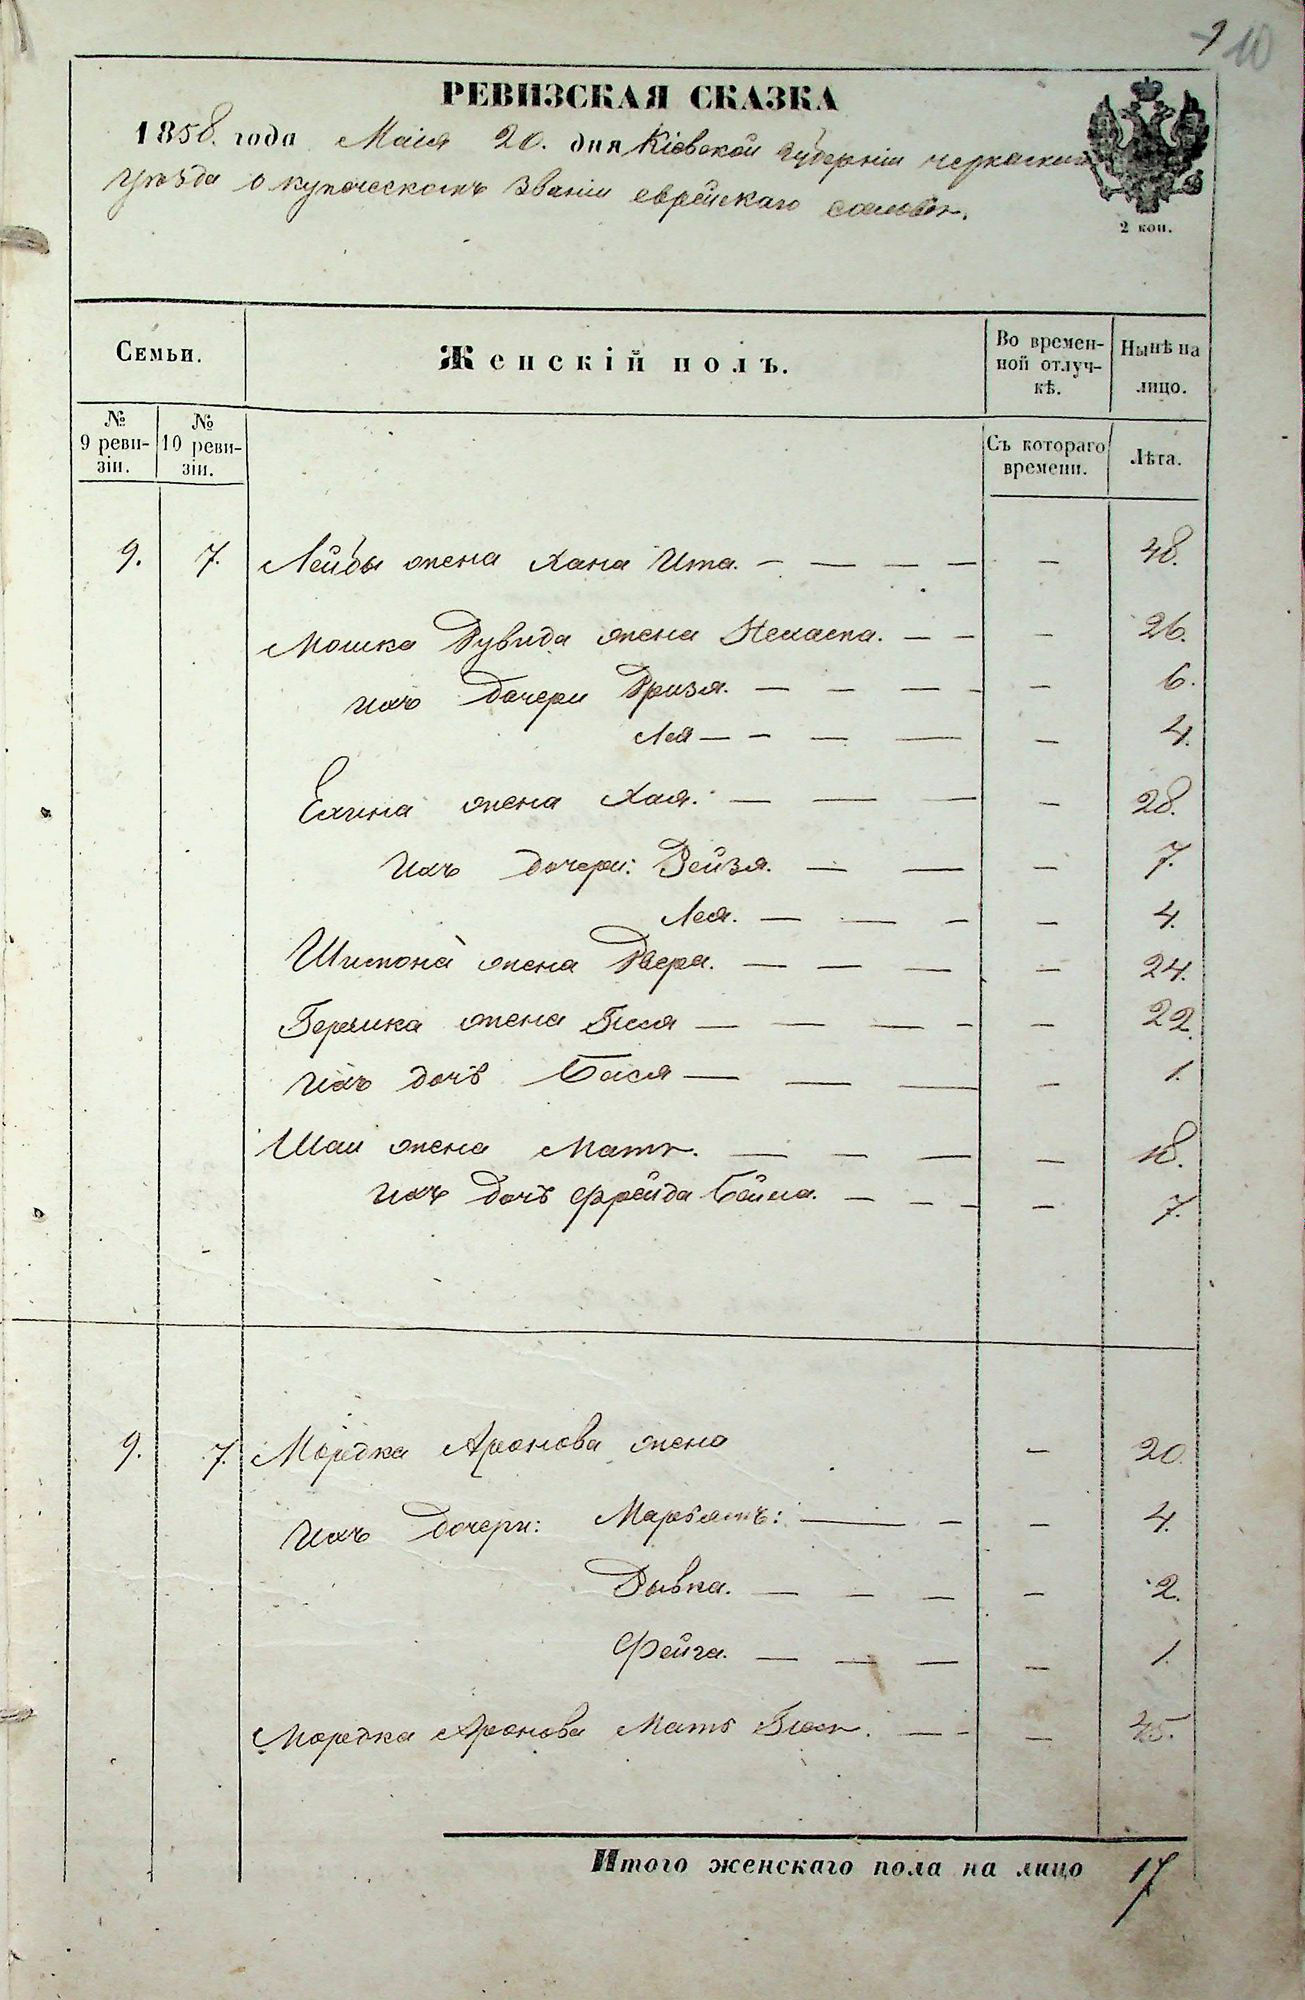 9 10
РЕВИЗСКАЯ СКАЗКА
1858. года Маія 20. дня Кіевской губерніи черкаскаго
уѣзда о купеческомъ званіи еврейскаго
2 коп.
Семьи.
Женскій полъ.
Во времен-
ной отлуч-
кѣ.
Нынѣ на
лицо.
№
9 реви-
зіи.
№
10 реви-
зіи.
Съ котораго
времени.
Лѣта.
9. 7. Лейбы жена Хана Ита. — — — — — 48.
Мошка Дувида жена Нехама. — — — 26.
ихъ дочери Дризя. — — — — — 6.
Лея — — — — — 4.
Ехина жена Хая. — — — — 28.
ихъ дочери: Рейзя. — — — 7.
Лея. — — — — 4.
Шимона жена Двера. — — — — 24.
Беришка жена Бися — — — — — 22.
ихъ дочь Бася — — — — 1.
Шаи жена Мать. — — — — 18.
ихъ дочь Фрейда Бейла. — — — — 7.
9. 7. Мордка Аронова жена — 20.
ихъ дочери: Марьямъ: — — — 4.
Рывка. — — — — 2.
Фейга. — — — — 1.
Мордка Аронова Мать — — — 45.
Итого женскаго пола на лицо 17